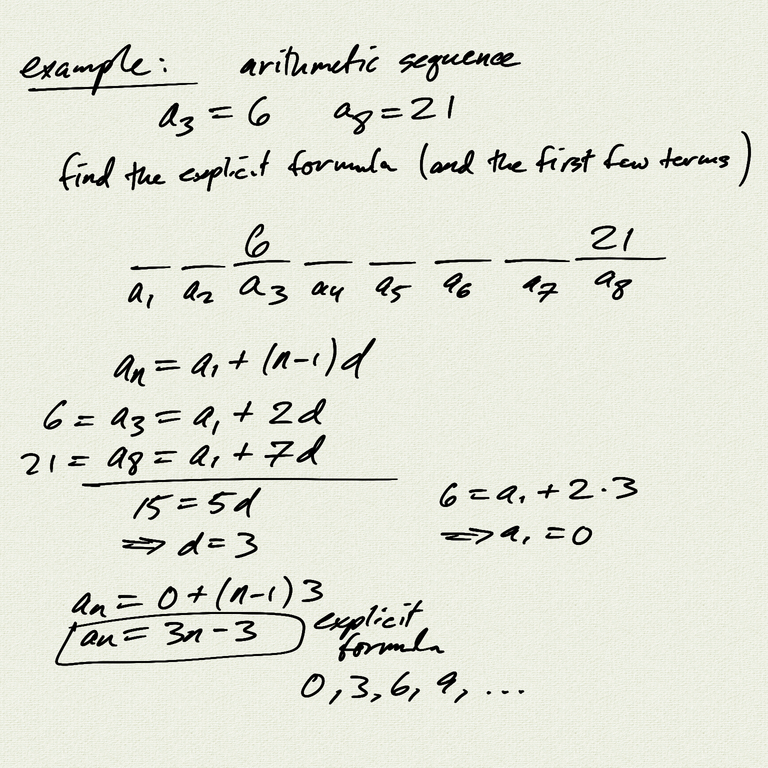 example: arithmetic sequence
a₃ = 6 a₈ = 21
find the explicit formula (and the first few terms)
6 21
a₁ a₂ a₃ a₄ a₅ a₆ a₇ a₈
aₙ = a₁ + (n-1)d
6 = a₃ = a₁ + 2d
21 = a₈ = a₁ + 7d
15 = 5d
⇒ d = 3
6 = a₁ + 2·3
⇒ a₁ = 0
aₙ = 0 + (n-1)3
aₙ = 3n - 3
explicit
formula
0, 3, 6, 9, ...